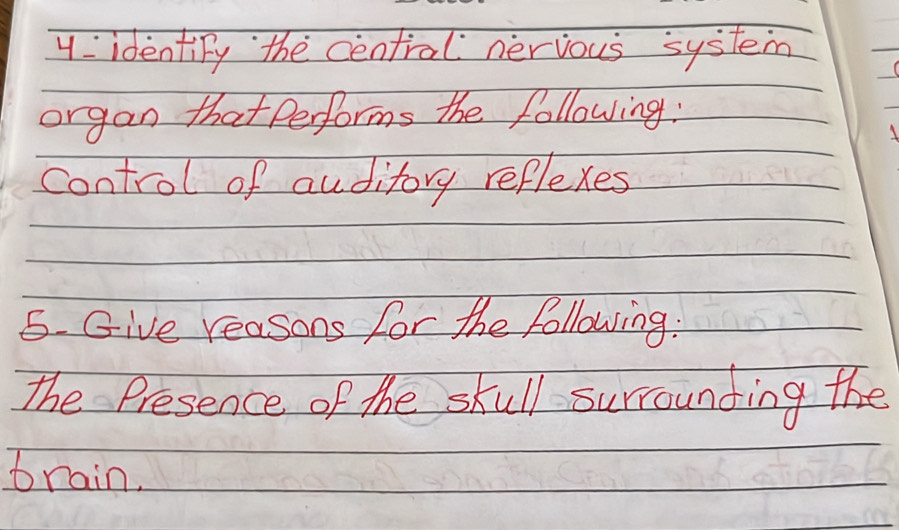 4- identify the central nervous system
organ that Performs the following:
Control of auditory reflexes
5- Give reasons for the following:
The Presence of the skull surrounding the
brain.